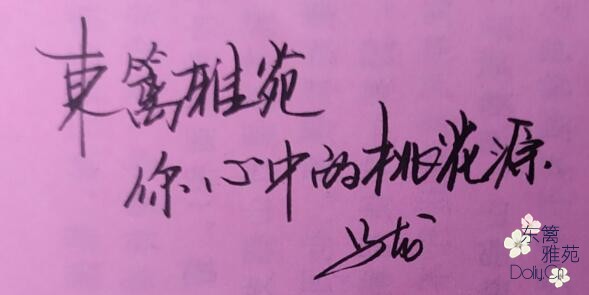 東篱雅苑
你心中的桃花源.
东篱
雅苑
Dolly.Cn